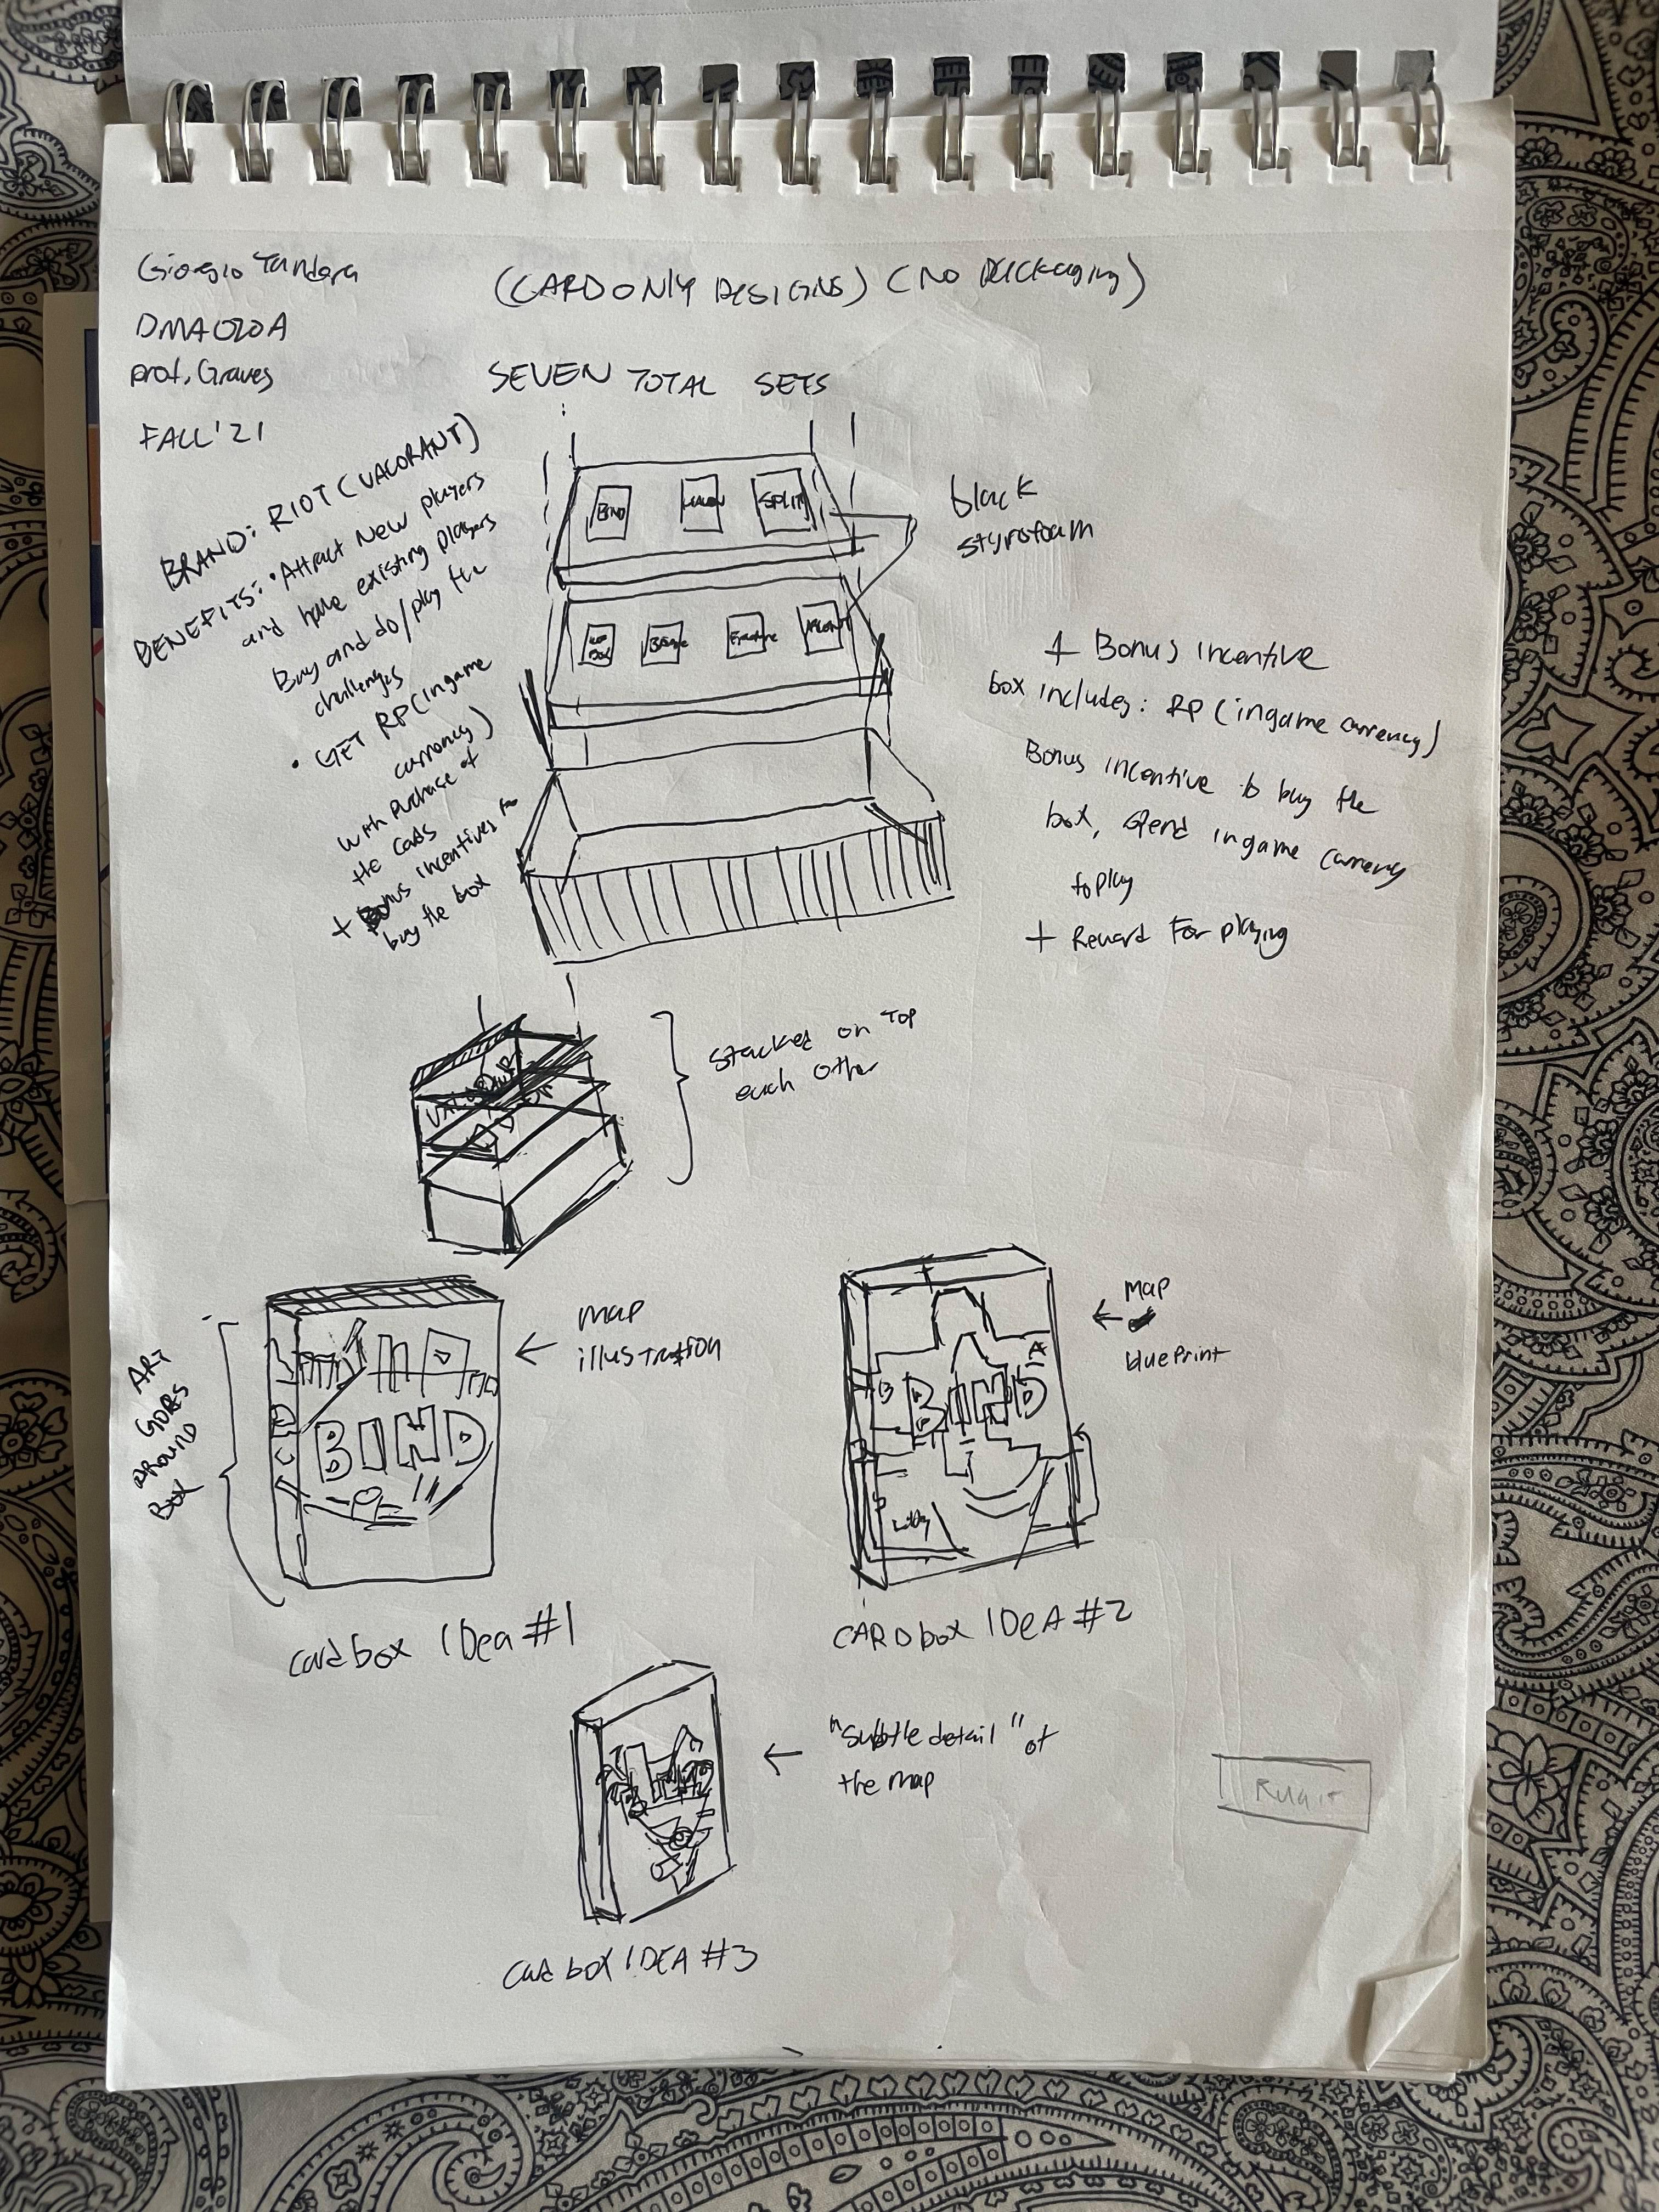 Giorgio Tandara
DMA020A
prof. Graves
FALL '21
(CARD ONLY DESIGNS) (NO PACKAGING)
SEVEN TOTAL SETS
BRAND: RIOT (VALORANT)
BENEFITS: • Attract New players
and have existing players
Buy and do/play the
challenges
• GET RP (ingame
currency)
with purchase of
the cards
+ Bonus incentives for
buy the box
BIND
HAVEN
SPLIT
ICE
BOX
Breeze
Fracture
ASCENT
black
styrofoam
+ Bonus incentive
box includes: RP (ingame currency)
Bonus incentive to buy the
box, spend ingame currency
to play
+ Reward for playing
VALORANT
Stacked on Top
each other
ART
GOES
AROUND
BOX
BIND
← map
illustration
cardbox IDea #1
A
B
BIND
Lobby
← map
blueprint
CARDbox IDeA #2
BIND
← "subtle detail" of
the map
card box IDEA #3